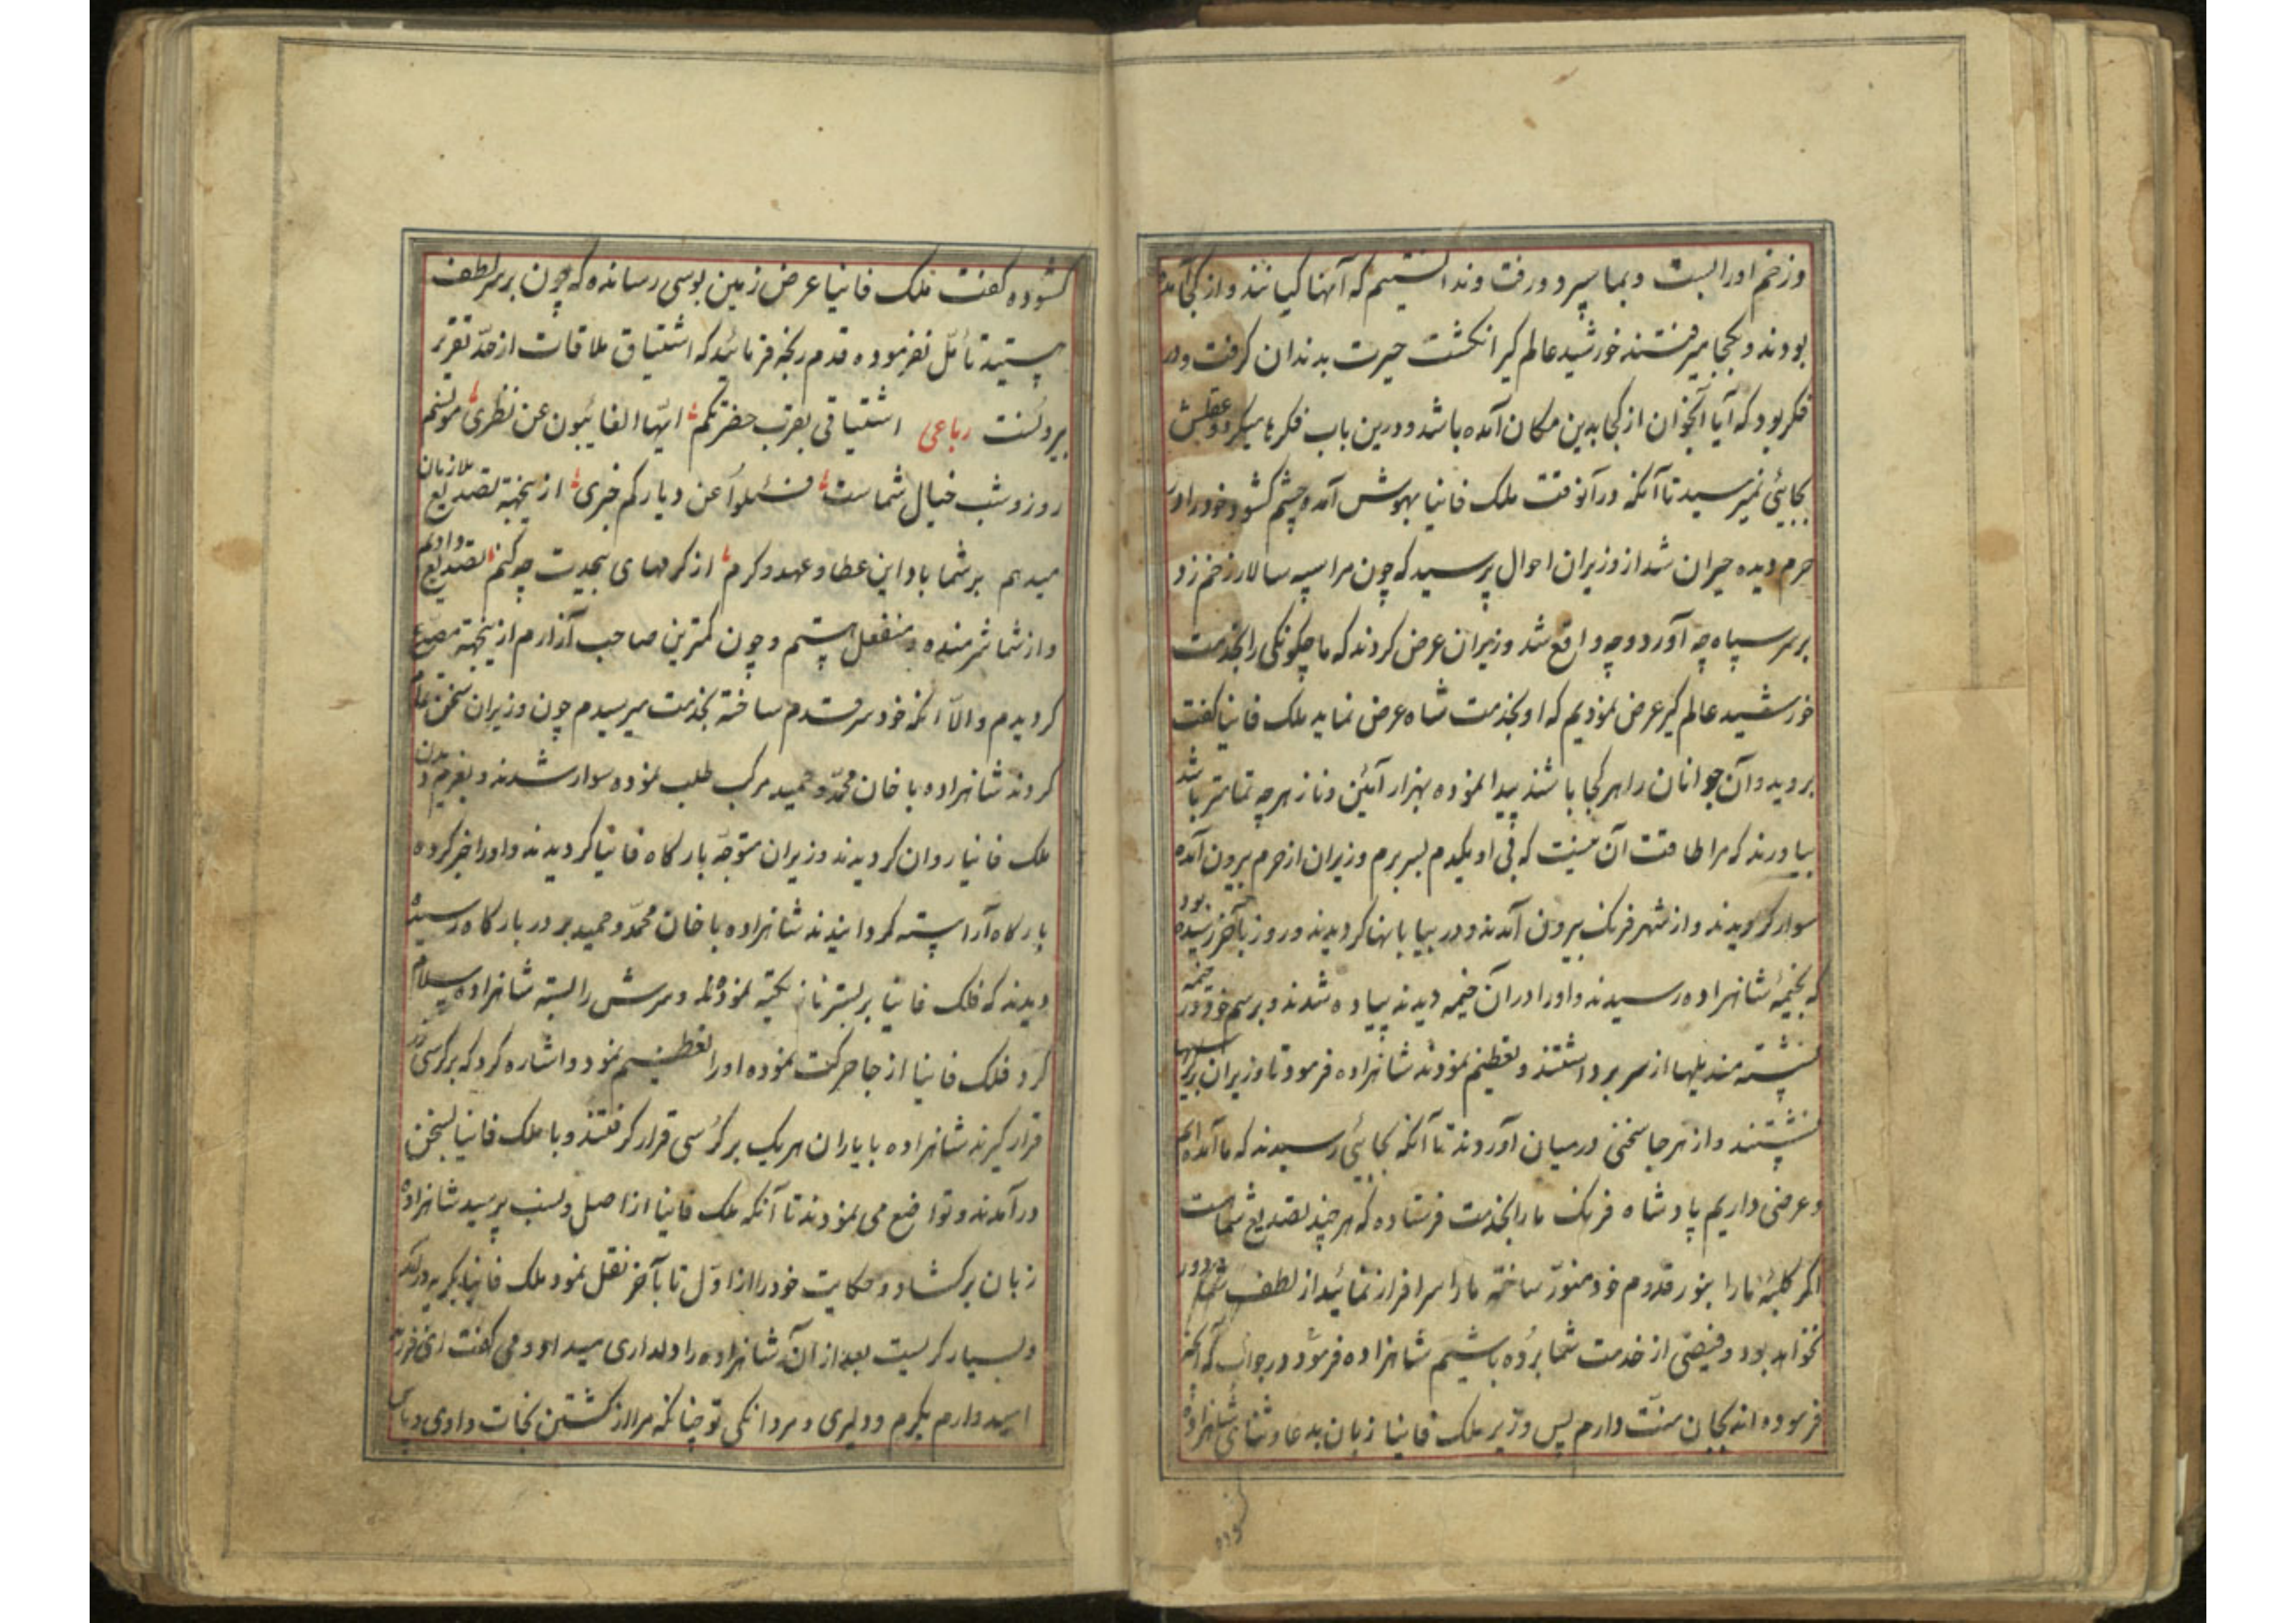 وزخم اورا بست و بما سپرد و رفت و ندانستیم که آنها کیانند و از کجا آمده
بودند و بکجا میرفتند خورشید عالم کیر انکشت حیرت بدندان کرفت و در
فکر بود که آیا آنجوان از کجا بدین مکان آمده باشد و درین باب فکرها میکرد و عقلش
بجایی نمیرسید تا آنکه در آنوقت ملک فانیا بهوش آمد و چشم کشود خود را در
حرم دیده حیران شد از وزیران احوال پرسید که چون مرا سپه سالار زخم زد
بر سر سپاه چه آورد و چه واقع شد وزیران عرض کردند که ما چکونکی را بخدمت
خورشید عالم کیر عرض نمودیم که او بخدمت شاه عرض نماید ملک فانیا کفت
بروید و آن جوانان را هر کجا باشند پیدا نموده بهزار آئین و ناز هر چه تمامتر باشد
بیاورند که مرا طاقت آن نیست که بی او یکدم بسر برم وزیران از حرم بیرون آمده
سوار کردیدند و از شهر فرنک بیرون آمدند و در بیابانها کردیدند و روز بآخر رسیده بود
که بخیمهٔ شاهزاده رسیدند و اورا در آن خیمه دیدند پیاده شدند و برسم خود در خیمه
نشسته مندیلها از سر برداشتند و تعظیم نمودند شاهزاده فرمود تا وزیران بر کرسیها
نشستند و از هر جا سخنی در میان آوردند تا آنکه بجایی رسیدند که ما آمده ایم
و عرضی داریم پادشاه فرنک ما را بخدمت فرستاده که هر چند تصدیع شماست
اکر کلبهٔ ما را بنور قدوم خود منوّر ساخته ما را سرافراز نمائید از لطف شما دور
نخواهد بود و فیضی از خدمت شما برده باشیم شاهزاده فرمود در جواب که آنچه
فرموده اند بجان منّت دارم پس وزیر ملک فانیا زبان بدعا و ثنای شاهزاده
کشوده
کشوده کفت ملک فانیا عرض زمین بوسی رسانده که چون بر سر لطف
هستید تأمّل نفرموده قدم رنجه فرمائید که اشتیاق ملاقات از حدّ تقریر
بیرونست رباعی اشتیاقی بقرب حضرتکم ایّها الغایبون عن نظری مونسم
روز و شب خیال شماست فسئلوا عن دیارکم خبری ازینجهة تصدیع ملازمان
میدهم بر شما باد این عطا و عهد و کرم از کرمهای بیحدت چکنم تصدیع دادیم
و از شما شرمنده و منفعل هستم و چون کمترین صاحب آزارم ازینجهة مصدع
کردیدم والاّ آنکه خود سر قدم ساخته بخدمت میرسیدم چون وزیران سخن تمام
کردند شاهزاده با خان محمّد و حمید مرکب طلب نموده سوار شدند و بعزم دیدن
ملک فانیا روان کردیدند وزیران متوجّه بارکاه فانیا کردیدند و اورا خبر کرده
بارکاه آراسته کردانیدند شاهزاده با خان محمّد و حمید بر در بارکاه رسیده
دیدند که فلک فانیا بر بستر ناز تکیه نموده و سرش را بسته شاهزاده سلام
کرد فلک فانیا از جا حرکت نموده اورا تعظیم نمود و اشاره کرد که بر کرسی
قرار کیرند شاهزاده با یاران هر یک بر کرسی قرار کرفتند و با ملک فانیا بسخن
درآمدند و تواضع می نمودند تا آنکه ملک فانیا از اصل و نسب پرسید شاهزاده
زبان برکشاد و حکایت خود را از اوّل تا بآخر نقل نمود ملک فانیا بکریه درآمد
و بسیار کریست بعد از آن شاهزاده را دلداری میداد و می کفت ای فرزند
امیدوارم بکرم و دلیری و مردانکی تو چنانکه مرا از کشتن نجات دادی